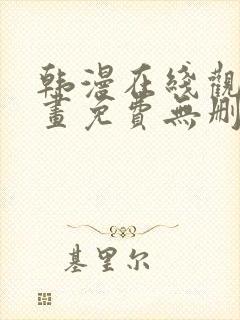 韩漫在綫觀
畫免費無刪
基里尔